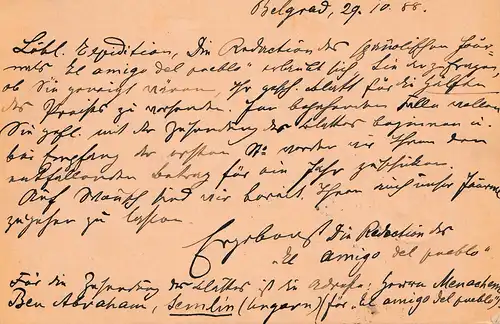 Belgrad, 29. 10. 88.
Löbl. Expedition, Die Redaction des spanolischen Jour-
nals "El amigo del pueblo" erlaubt sich Sie anzufragen
ob Sie geneigt wären, Ihr gesch. Blatt für die Hälfte
des Preises zu versenden. Im bejahenden Falle wollen
Sie gefl. mit der Zusendung des Blattes beginnen u.
bei Empfang der ersten No werden wir Ihnen den
entfallenden Betrag für ein Jahr zuschicken.
Auf Wunsch sind wir bereit, Ihnen auch unser Journal
zugehen zu lassen.
Ergebenst Die Redaction des
"El amigo del pueblo"
Für die Zusendung des Blattes ist die Adresse: Herrn Menachem
Ben Abraham, Semlin (Ungarn) für "El amigo del pueblo"